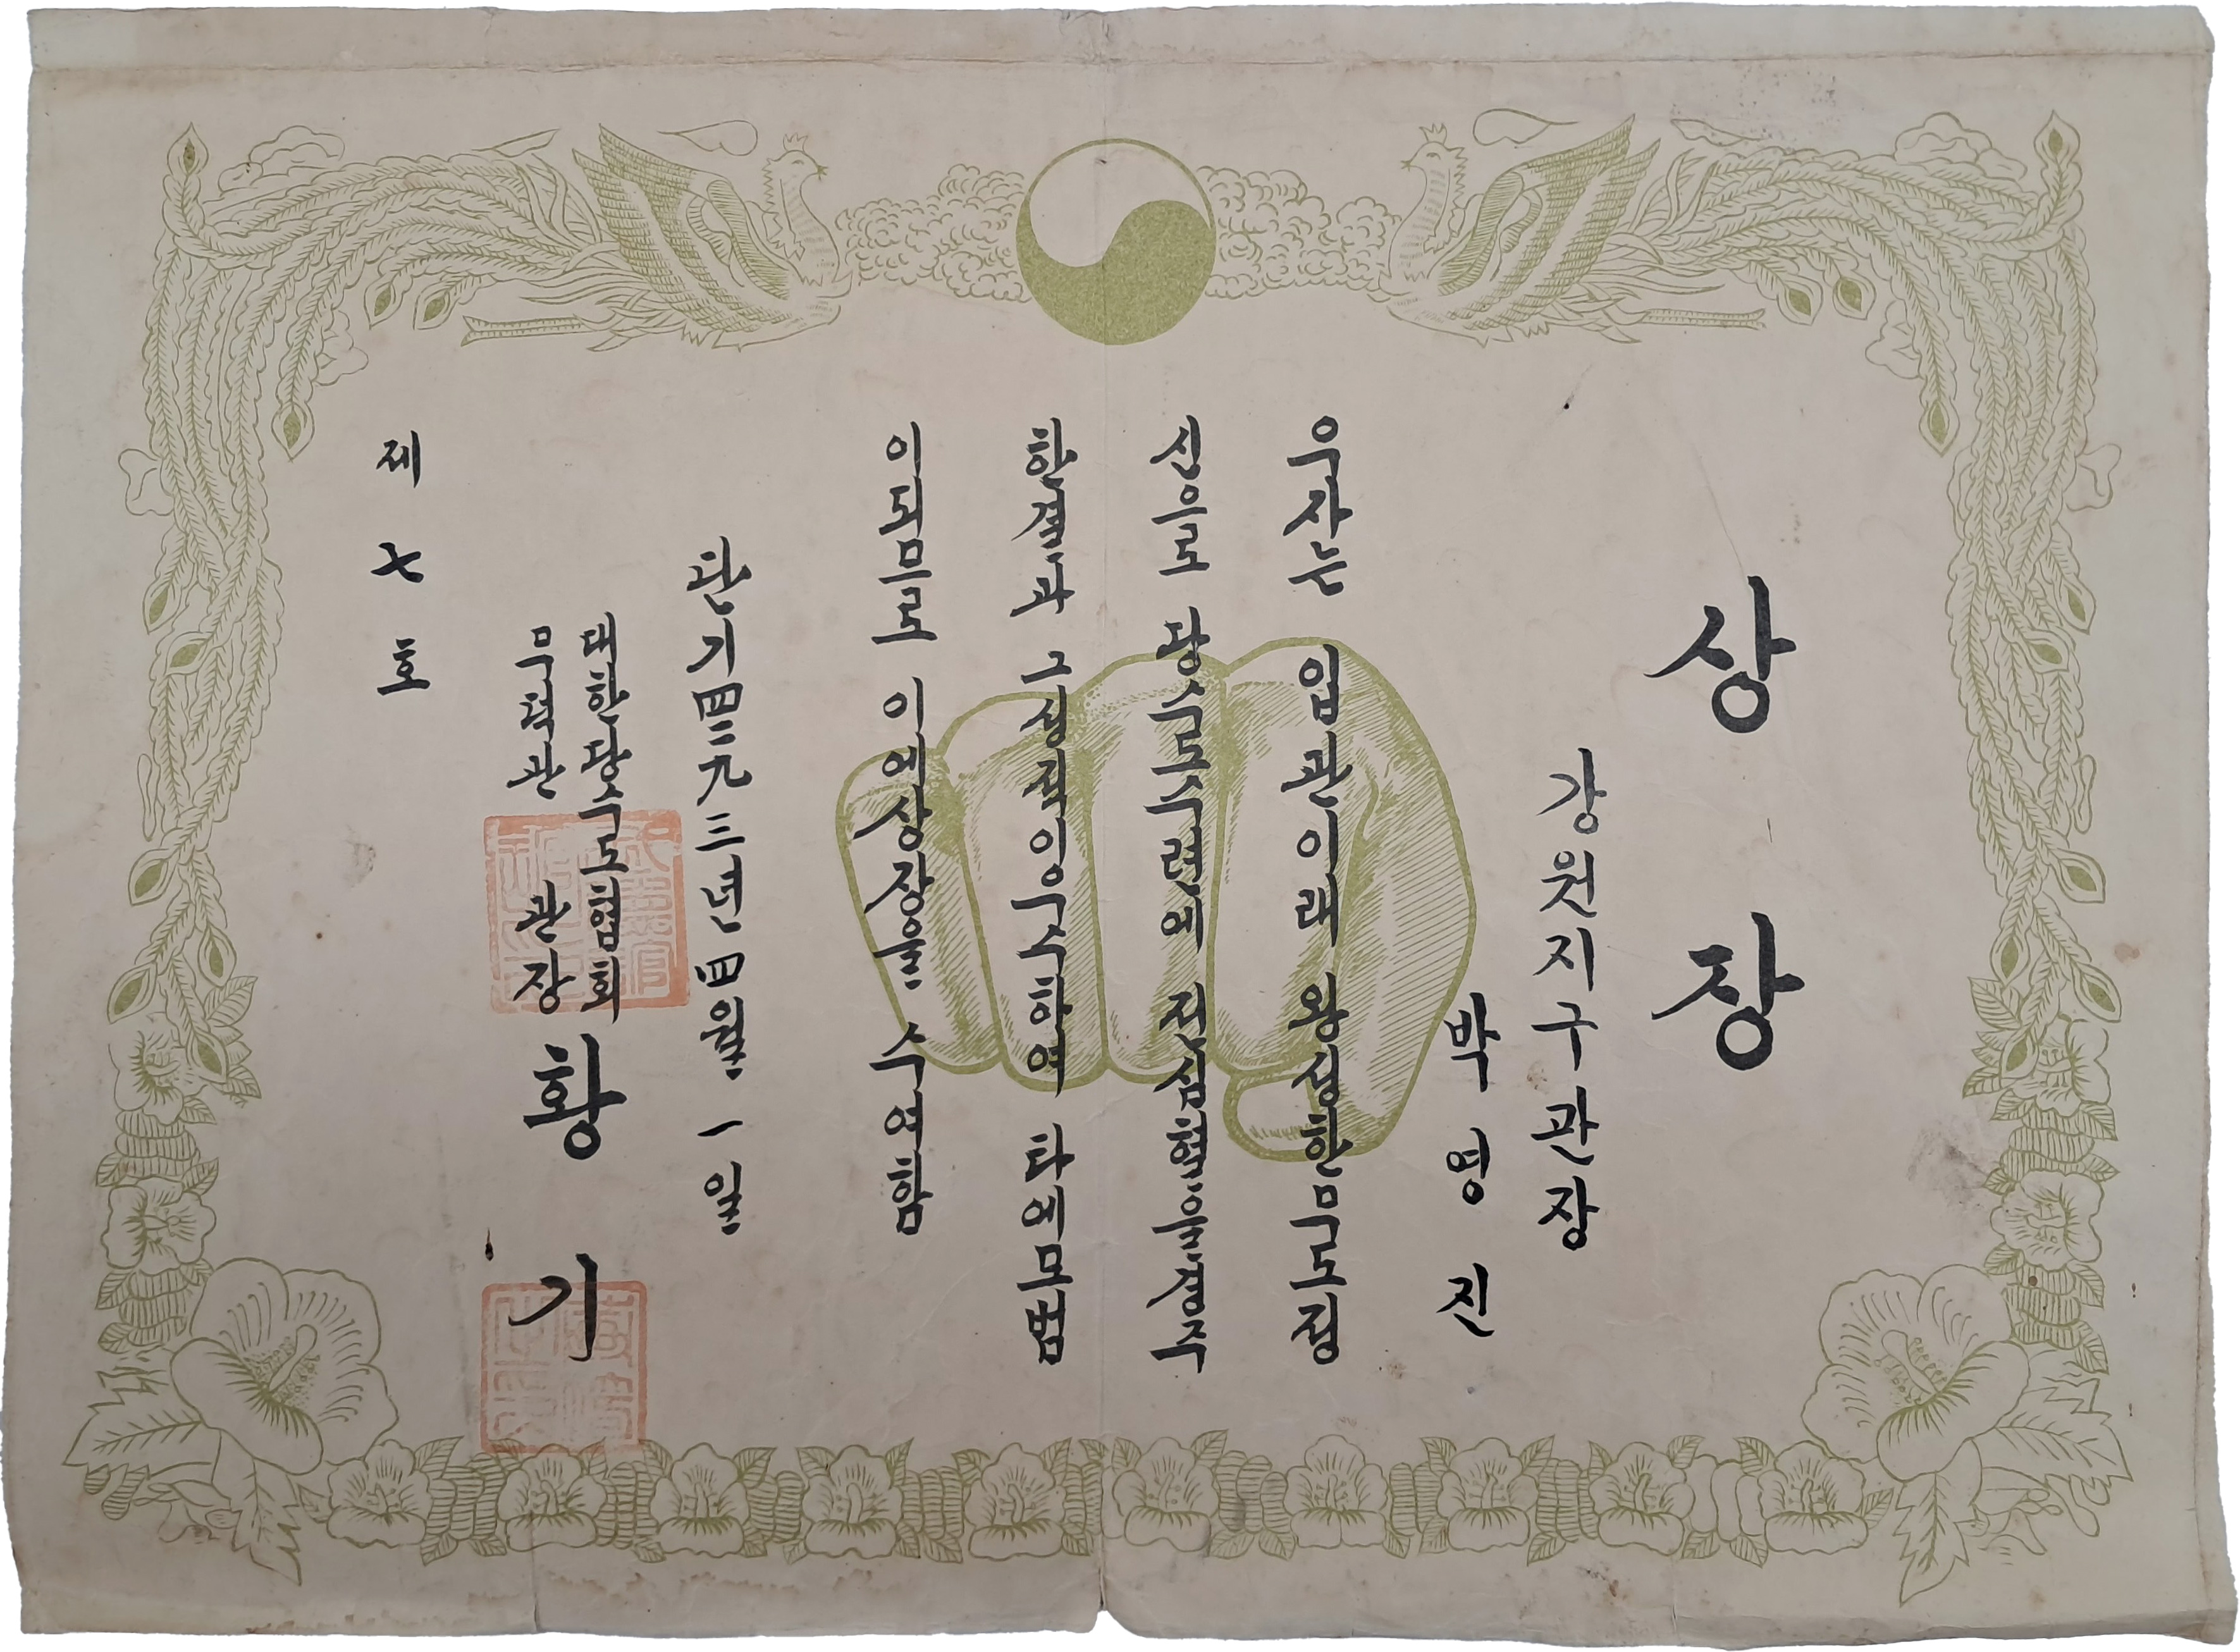 상장
강원지구관장
박영진
우자는 입관이래 왕성한무도정
신으로 당수도수련에 전심협을경주
한결과 그성적이우수하여 타에모범
이되므로 이에상장을 수여함
단기四二九三년 四월 一일
대한당수도협회
무덕관 관장 황기
제七호